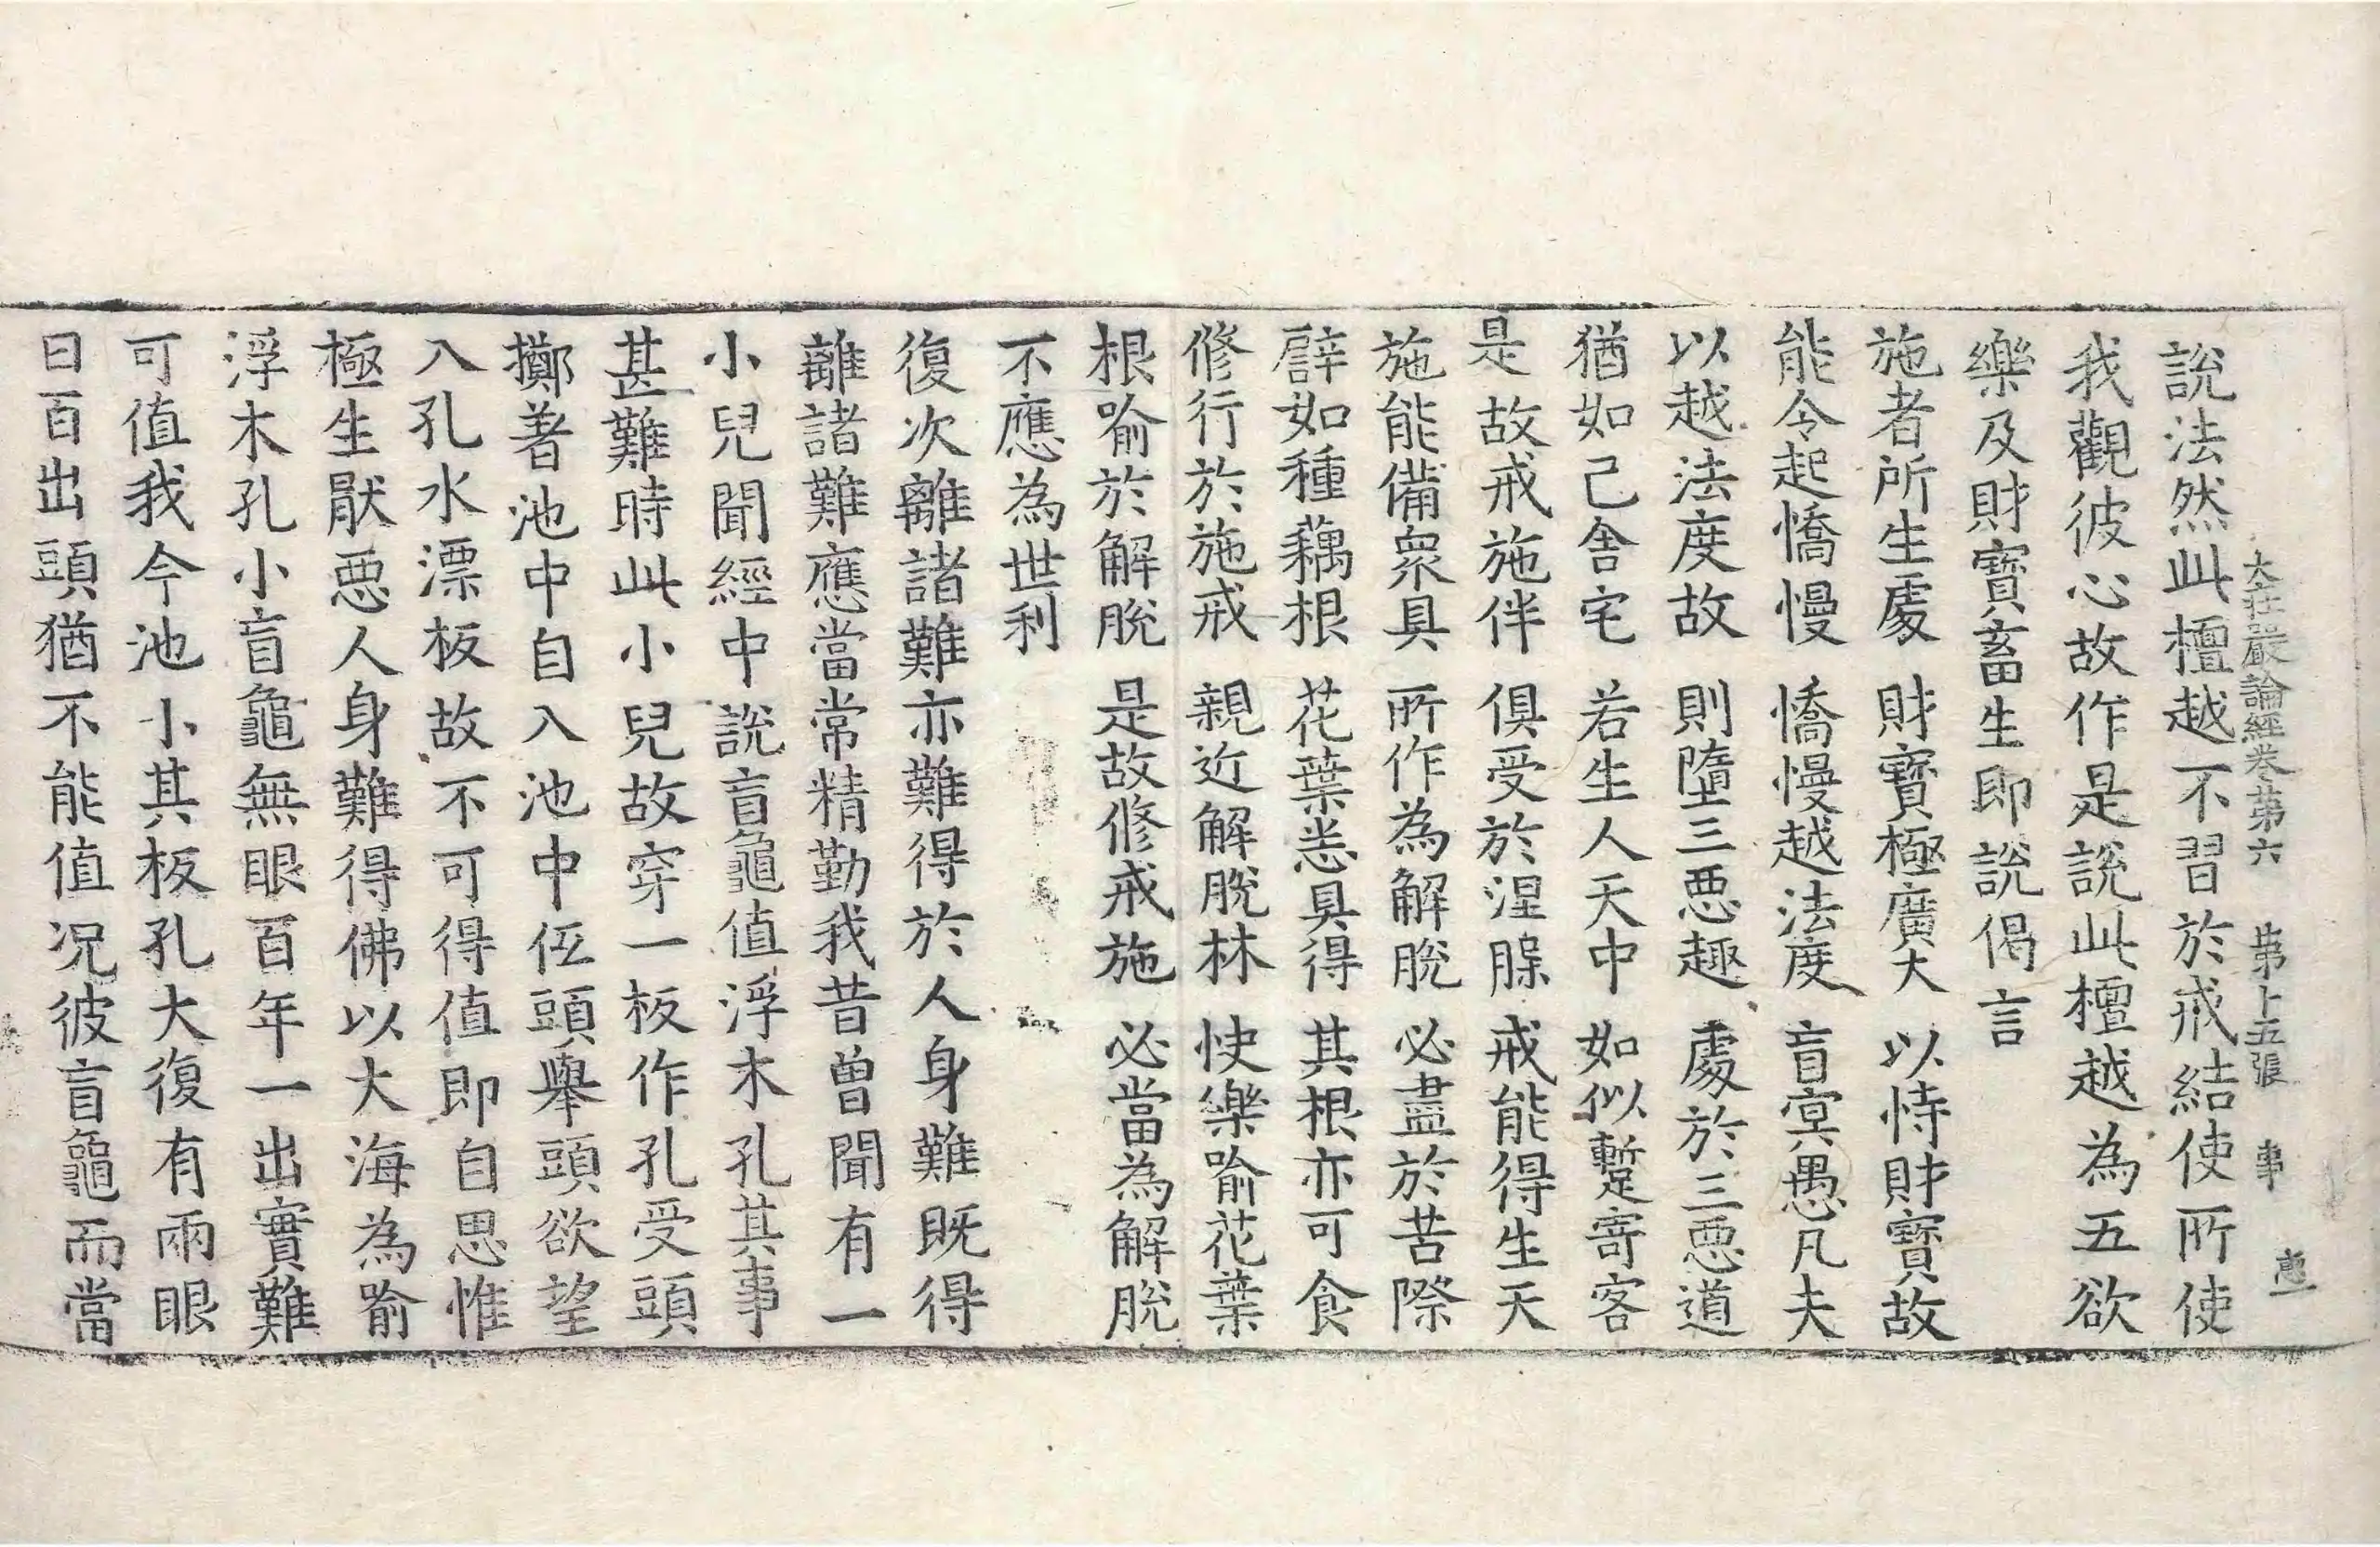 大莊嚴論經卷第六 第十五張 事
說法然此檀越不習於戒結使所使
我觀彼心故作是說此檀越為五欲
樂及財寶畜生即說偈言
施者所生處 財寶極廣大 以恃財寶故
能令起憍慢 憍慢越法度 盲冥愚凡夫
以越法度故 則墮三惡趣 處於三惡道
猶如己舍宅 若生人天中 如似暫寄客
是故戒施伴 俱受於涅槃 戒能得生天
施能備衆具 所作為解脫 必盡於苦際
譬如種藕根 花葉悉具得 其根亦可食
修行於施戒 親近解脫林 快樂喻花葉
根喻於解脫 是故修戒施 必當為解脫
不應為世利
復次離諸難亦難得於人身難既得
離諸難應當常精勤我昔曾聞有一
小兒聞經中說盲龜值浮木孔其事
甚難時此小兒故穿一板作孔受頭
擲著池中自入池中仾頭舉頭欲望
入孔水漂板故不可得值即自思惟
極生厭惡人身難得佛以大海為喻
浮木孔小盲龜無眼百年一出實難
可值我今池小其板孔大復有兩眼
日百出頭猶不能值况彼盲龜而當